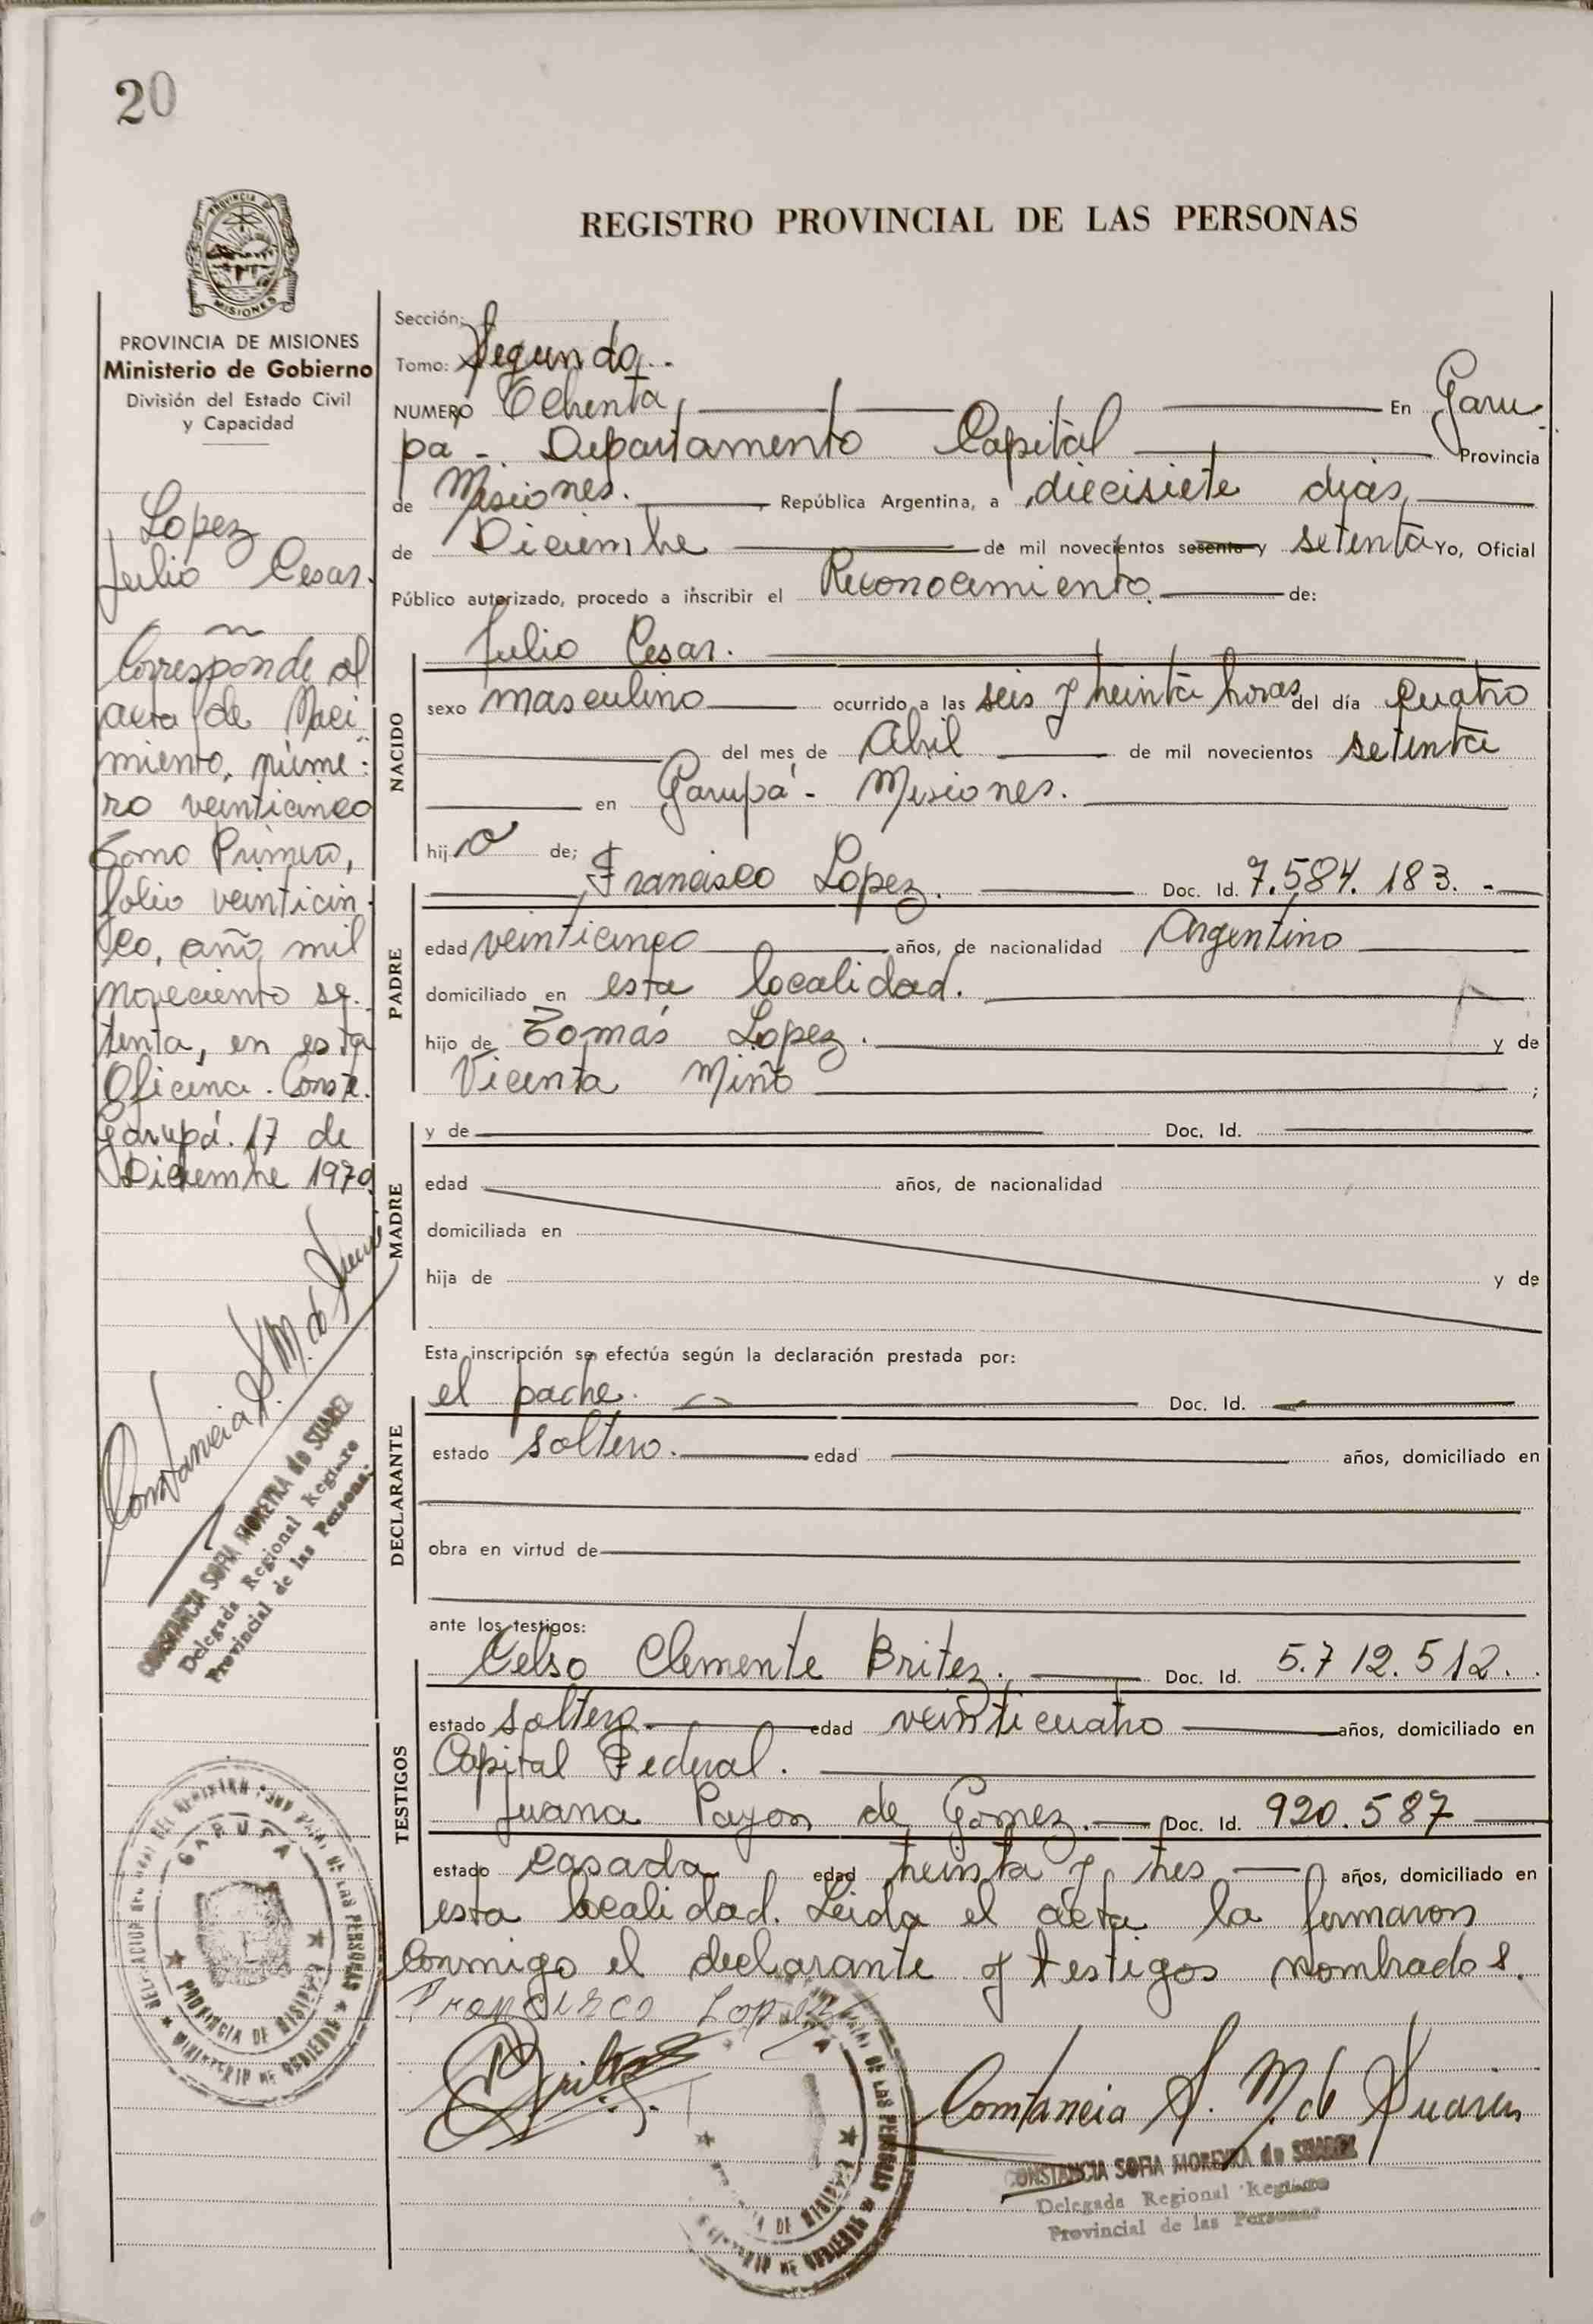 20
REGISTRO PROVINCIAL DE LAS PERSONAS
PROVINCIA
MISIONES
PROVINCIA DE MISIONES
Ministerio de Gobierno
División del Estado Civil
y Capacidad
Lopez
Julio Cesar.
Corresponde al
acta de Naci
miento, núme-
ro veinticinco
Tomo Primero,
folio veinticin-
co, año mil
noveciento se-
tenta, en esta
Oficina. Conste.
Garupá. 17 de
Diciembre 1970
Constancia S. M. de Suarez
CONSTANCIA SOFIA MOREYRA de SUAREZ
Delegada Regional Registro
Provincial de las Personas
GARUPA
PROVINCIA DE MISIONES
MINISTERIO DE GOBIERNO
DE LAS PERSONAS
Sección:
Tomo: Segundo.-
NUMERO Ochenta, En Garu-
pá - Departamento Capital Provincia
de Misiones. República Argentina, a diecisiete dias
de Diciembre de mil novecientos sesenta y setenta Yo, Oficial
Público autorizado, procedo a inscribir el Reconocimiento. de:
Julio Cesar.
NACIDO
sexo masculino ocurrido a las seis y treinta horas del día cuatro
del mes de Abril de mil novecientos setenta
en Garupá - Misiones.
hij o de;
PADRE
Francisco Lopez. Doc. Id. 7.584.183.-
edad veinticinco años, de nacionalidad Argentino
domiciliado en esta localidad.
hijo de Tomás Lopez. y de
Vicenta Miño ;
MADRE
y de Doc. Id.
edad años, de nacionalidad
domiciliada en
hija de y de
Esta inscripción se efectúa según la declaración prestada por:
DECLARANTE
el padre. Doc. Id.
estado soltero. edad años, domiciliado en
obra en virtud de
ante los testigos:
TESTIGOS
Celso Clemente Britez. Doc. Id. 5.712.512.
estado soltero. edad veinticuatro años, domiciliado en
Capital Federal.
Juana Payon de Gomez. Doc. Id. 920.587
estado casada edad treinta y tres años, domiciliado en
esta localidad. Leida el acta la firmaron
conmigo el declarante y testigos nombrados.
Francisco Lopez
Constancia S. M. de Suarez
CONSTANCIA SOFIA MOREYRA de SUAREZ
Delegada Regional Registro
Provincial de las Personas
DE LAS PERSONAS